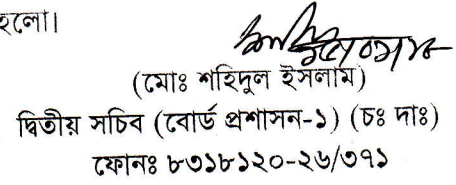 হলো।
(মোঃ শহিদুল ইসলাম)
দ্বিতীয় সচিব (বোর্ড প্রশাসন-১) (চঃ দাঃ)
ফোনঃ ৮৩১৮১২০-২৬/৩৭১